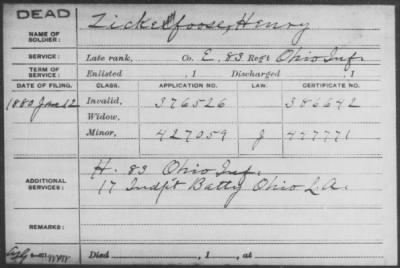 DEAD
NAME OF SOLDIER: Zickefoose, Henry
SERVICE: Late rank, Co. E, 83 Reg't Ohio Inf.
TERM OF SERVICE: Enlisted , 1 Discharged , 1
DATE OF FILING. CLASS. APPLICATION NO. LAW: CERTIFICATE NO.
1880 June 12 Invalid, 376526 386642
Widow,
Minor, 427059 J 477771
ADDITIONAL SERVICES: H. 83 Ohio Inf.
17 Indp't Batty Ohio L.A.
REMARKS:
Died , 1 , at